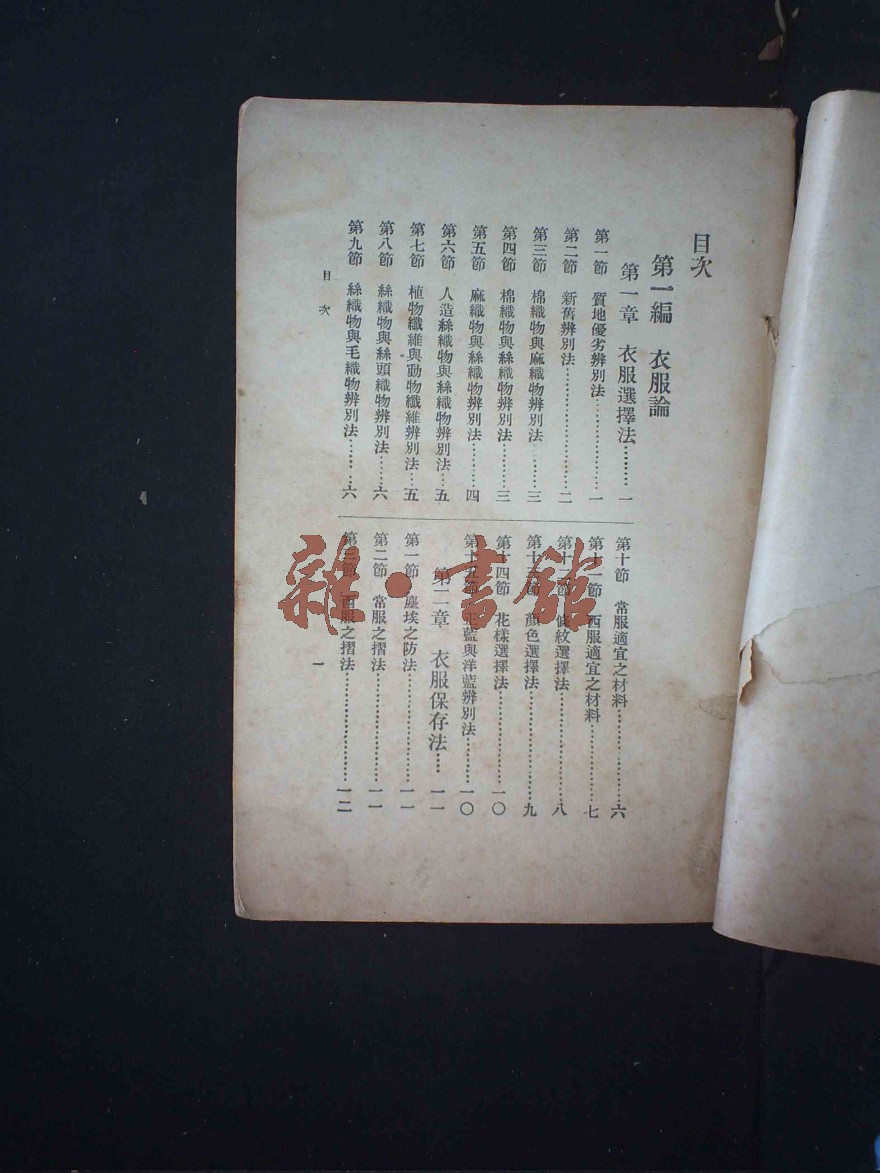 目次
第一編　衣服論
第一章　衣服選擇法………一
第一節　質地優劣辨別法………………一
第二節　新舊辨別法……………………二
第三節　棉織物與麻織物辨別法………三
第四節　棉織物與絲織物辨別法………三
第五節　麻織物與絲織物辨別法………四
第六節　人造絲織物與絲織物辨別法…五
第七節　植物纖維與動物纖維辨別法…五
第八節　絲織物與絲頭織物辨別法……六
第九節　絲織物與毛織物辨別法………六
第十節　常服適宜之材料………………六
第十一節　西服適宜之材料……………七
第十二節　條紋選擇法…………………八
第十三節　顏色選擇法…………………九
第十四節　花樣選擇法…………………一〇
第十五節　正藍與洋藍辨別法…………一〇
第二章　衣服保存法……一一
第一節　塵埃之防法……………………一一
第二節　常服之摺法……………………一一
第三節　西服之摺法……………………一二
目次
一
雜·書館